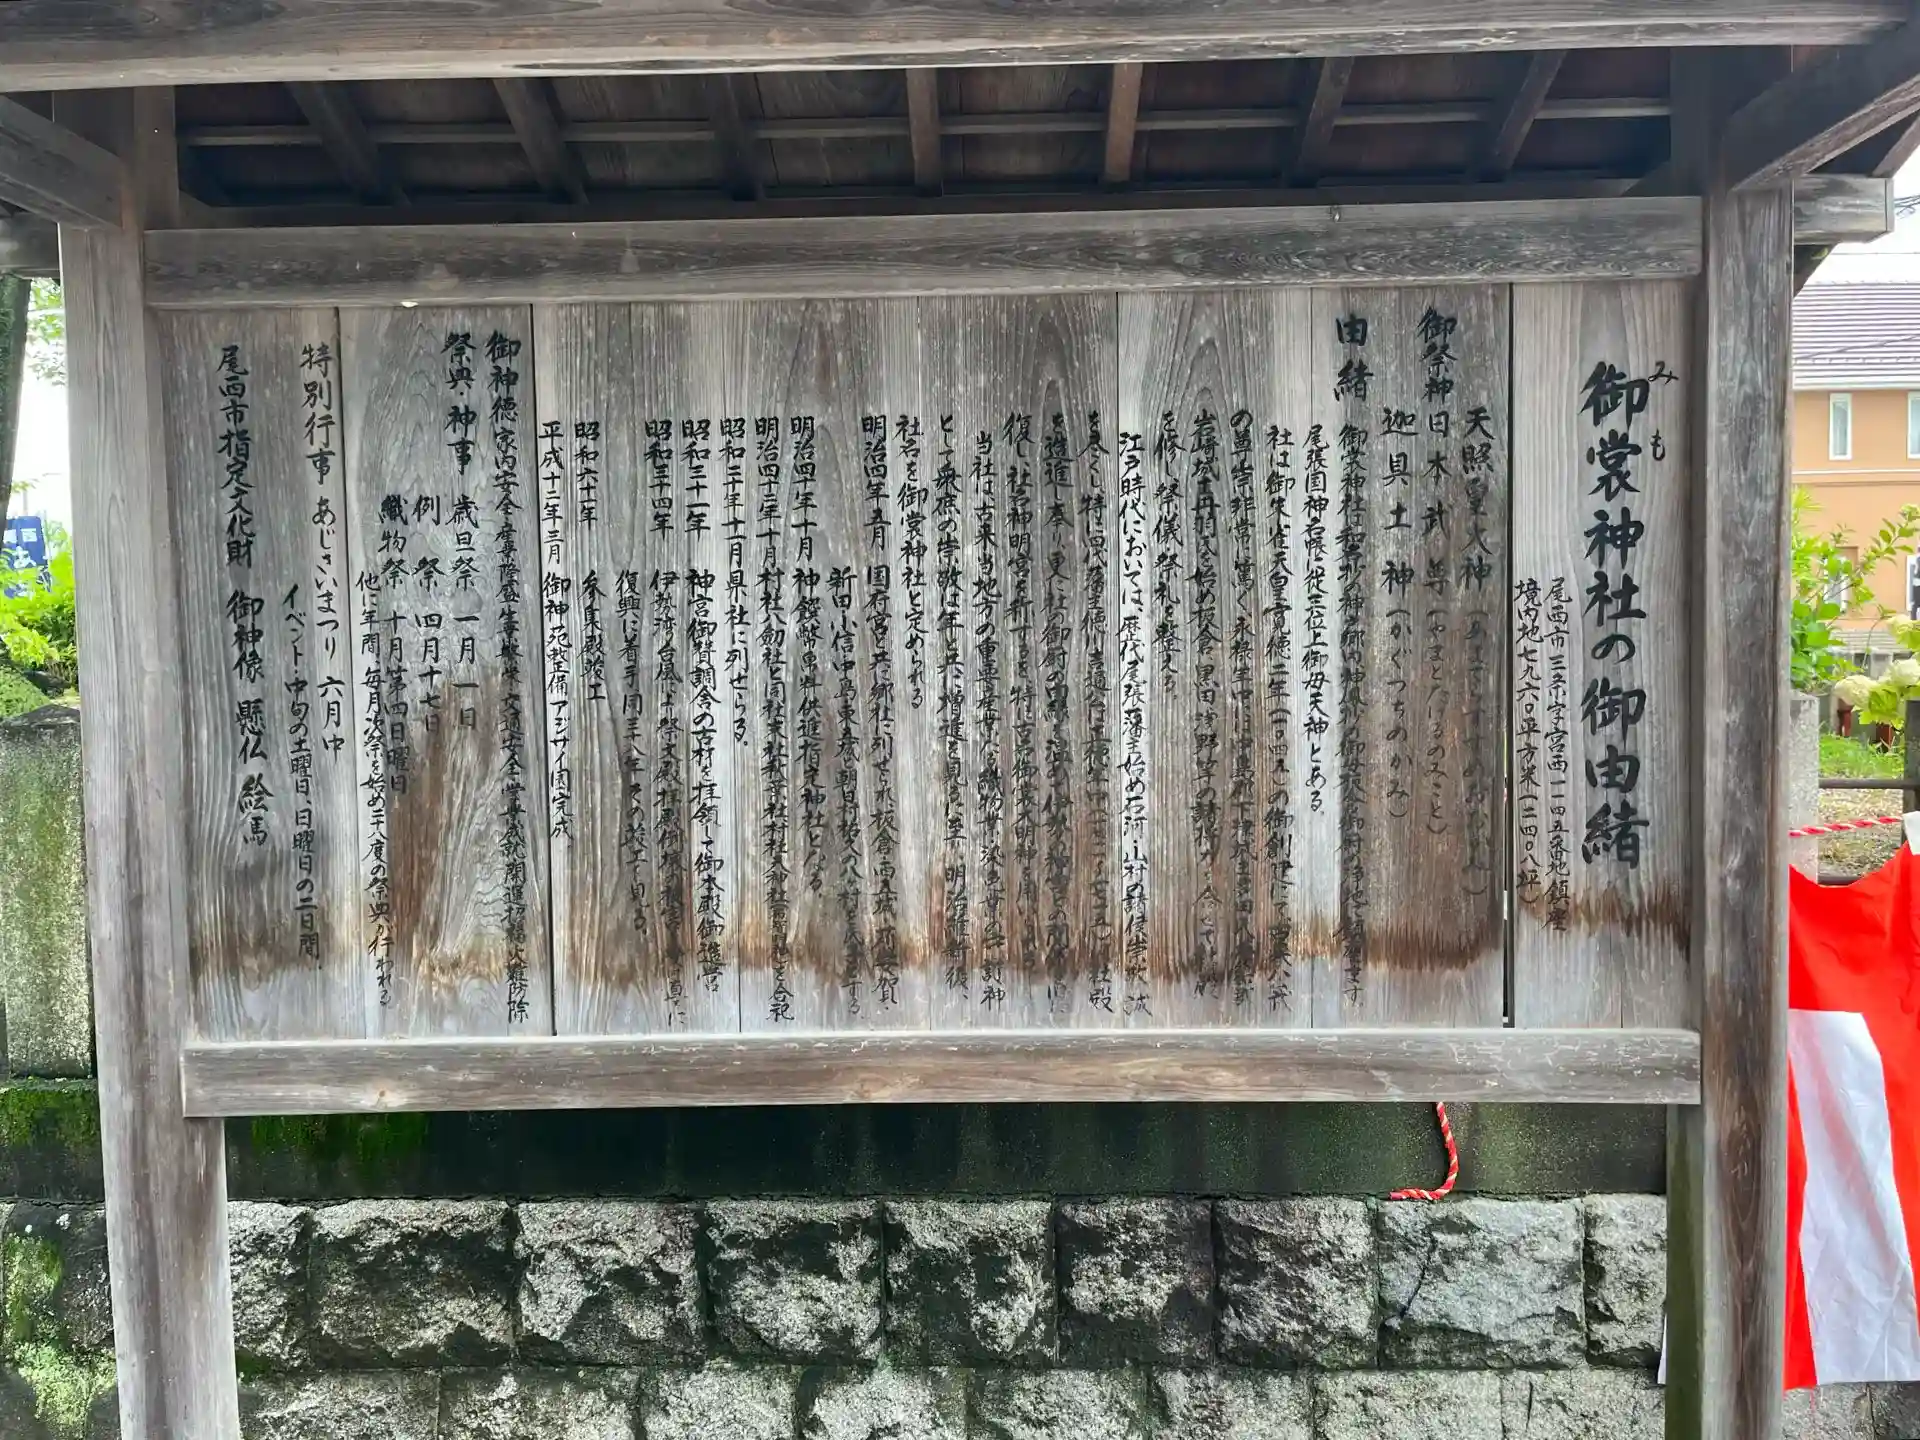 御裳神社の御由緒
みも
尾西市三条字宮西一一四五番地鎮座
境内地七九六〇平方米(二四〇八坪)
御祭神
天照皇大神(あまてらすすめおおかみ)
日本武尊(やまとたけるのみこと)
迦具土神(かぐつちのかみ)
由緒
御裳神社は
尾張国神名帳に従三位上御母天神とある。
社は御朱雀天皇寛徳二年(一〇四五)の御創建にて
の尊崇非常に篤く永禄年中には中島郡下
岩崎城主丹羽氏を始め板倉、黒田、浅野等の諸
を修し祭儀祭礼を整える。
江戸時代においては、歴代尾張藩主始め石河、山村の諸侯崇敬誠
を尽くし、特に四代藩主徳川吉通公は正徳年中
を造進し奉り、更に社の御厨の由縁を温め伊勢の神宮との関係
復し、社名神明宮を新するを、特に古名御裳大明神を用い
当社は古来、当地方の重要産業たる織物業、染色業の守護神
として衆庶の崇敬は年と共に増進を見るに至り、明治維新後、
社名を御裳神社と定められる
明治四年五月 国府宮と共に郷社に列せられ、板倉、西五城、
新田、小信中島、東五城、朝日村
明治四十年十月 神饌幣帛料供進指定神社となる。
明治四十三年十月 村社八劔社と同社末社秋葉社、村社天神社を合祀
昭和二十年十一月 県社に列せらる。
昭和三十一年 神宮御贊調舎の古材を拝領して御本殿御造営
昭和三十四年 伊勢湾台風により祭文殿拝殿倒壊
復興に着手同三十八年その竣工を見る。
昭和六十一年 参集殿竣工
平成十二年三月 御神苑整備アジサイ園完成
御神徳 家内安全 産業隆盛 生業繁栄 交通安全 学業成就 開運招福 火難防除
祭典・神事 歳旦祭 一月一日
例祭 四月十七日
織物祭 十月第四日曜日
他に年間、毎月次祭を始め二十八度の祭典が行われる
特別行事 あじさいまつり 六月中
イベント・中旬の土曜日、日曜日の二日間。
尾西市指定文化財 御神像 懸仏 絵馬